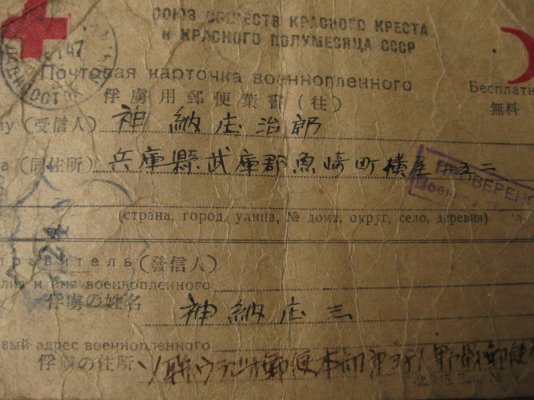 СОЮЗ ОБЩЕСТВ КРАСНОГО КРЕСТА
и КРАСНОГО ПОЛУМЕСЯЦА СССР
47
Почтовая карточка военнопленного
俘虜用郵便葉書(往)
Бесплатн
無料
му (受信人) 神納庄治郎
а (同住所) 兵庫縣武庫郡魚崎町横屋
ПРОВЕРЕНО
(страна, город, улица, № дома, округ, село, деревня)
правитель (發信人)
лия и имя военнопленного
俘虜の姓名 神納庄三
вый адрес военнопленного
俘虜の住所